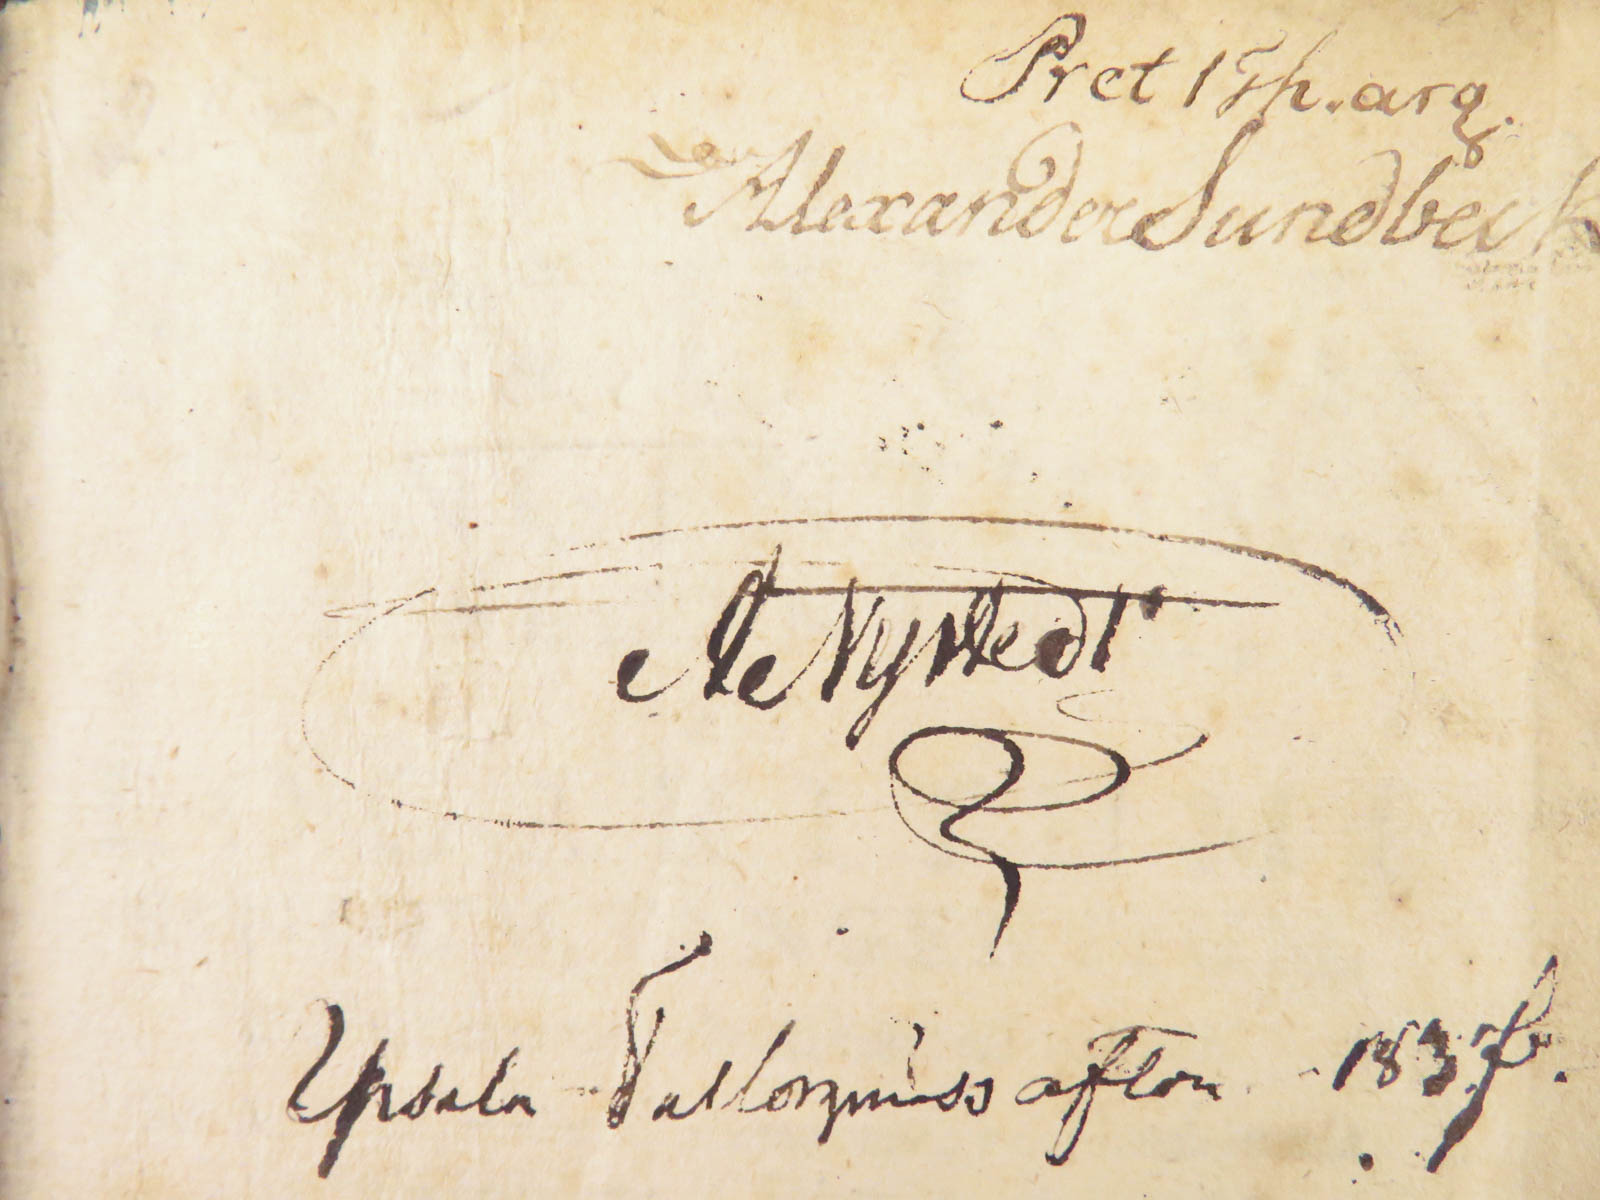 Pret 1 Th. arg.
Alexander Sundbeck
A Nystedt
Upsala Valborgmäss afton 1837.